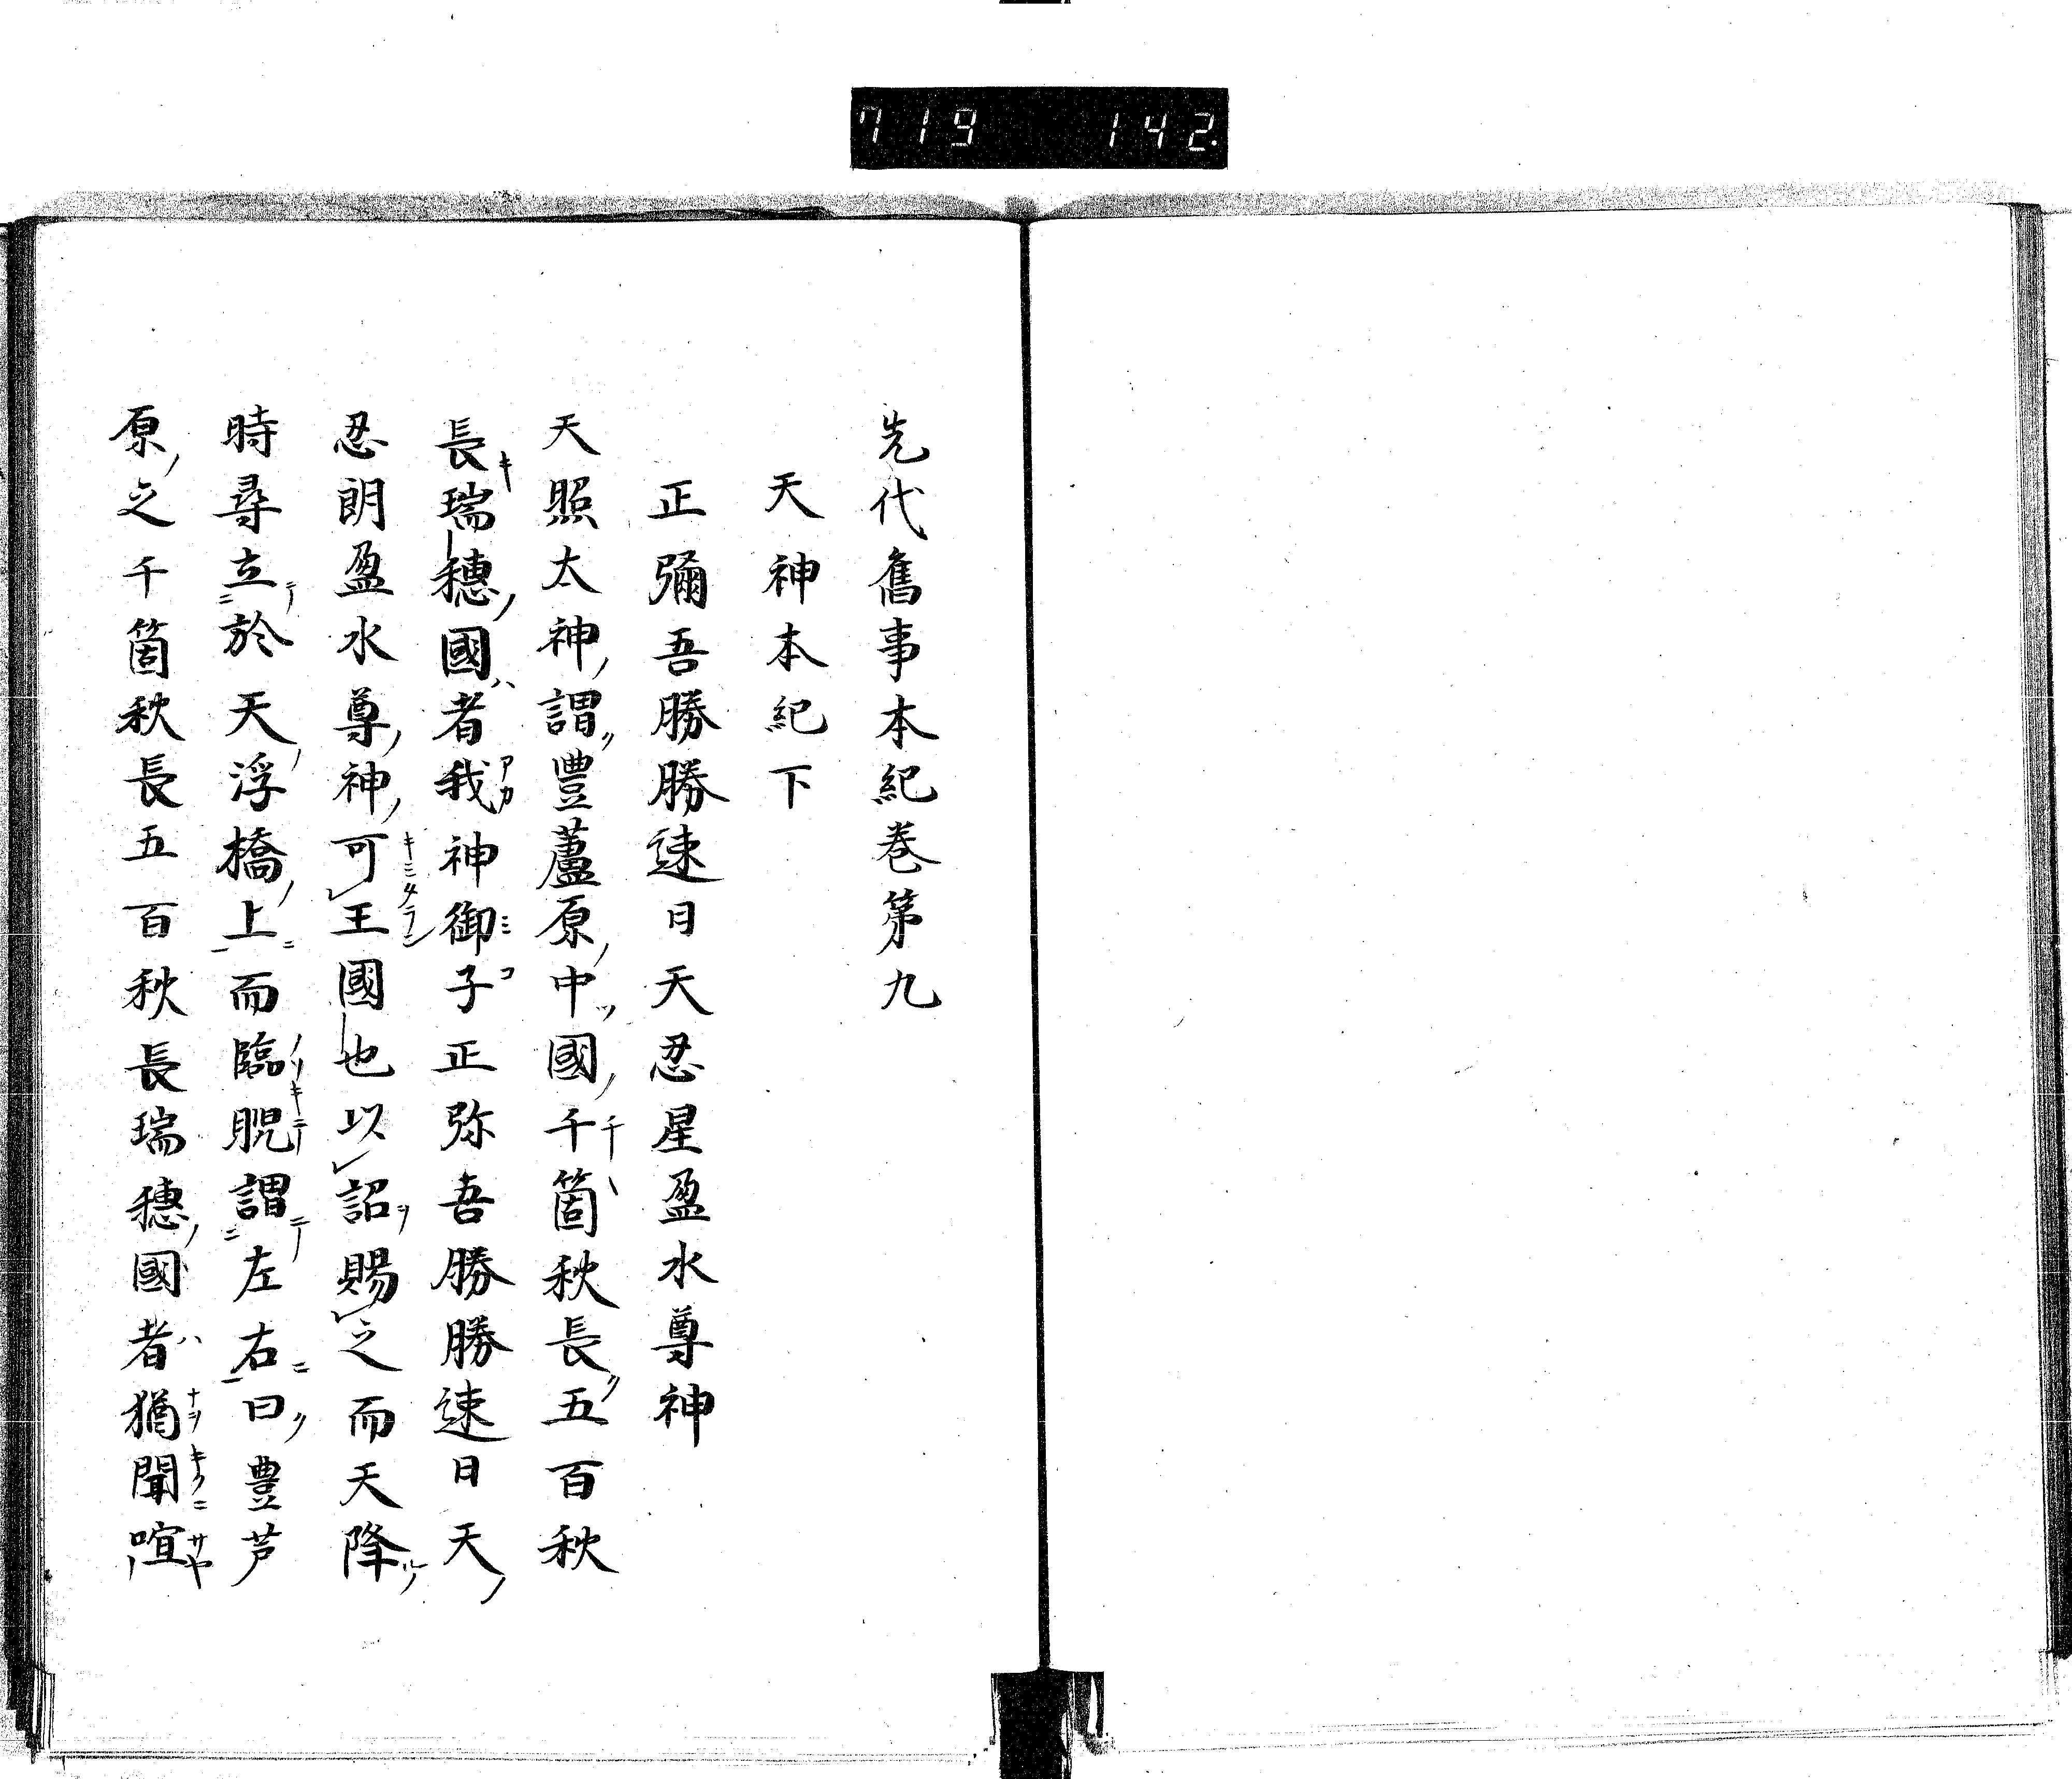 719 142.
先代舊事本紀巻第九
天神本紀下
正彌吾勝勝速日天忍星盈水尊神
天照太神謂豊蘆原中國千箇秋長五百秋
長瑞穗國者我神御子正弥吾勝勝速日天
忍朗盈水尊神可王國也以詔賜之而天降
時尋立於天浮橋上而臨睨謂左右曰豊芦
原之千箇秋長五百秋長瑞穗國者猶聞喧